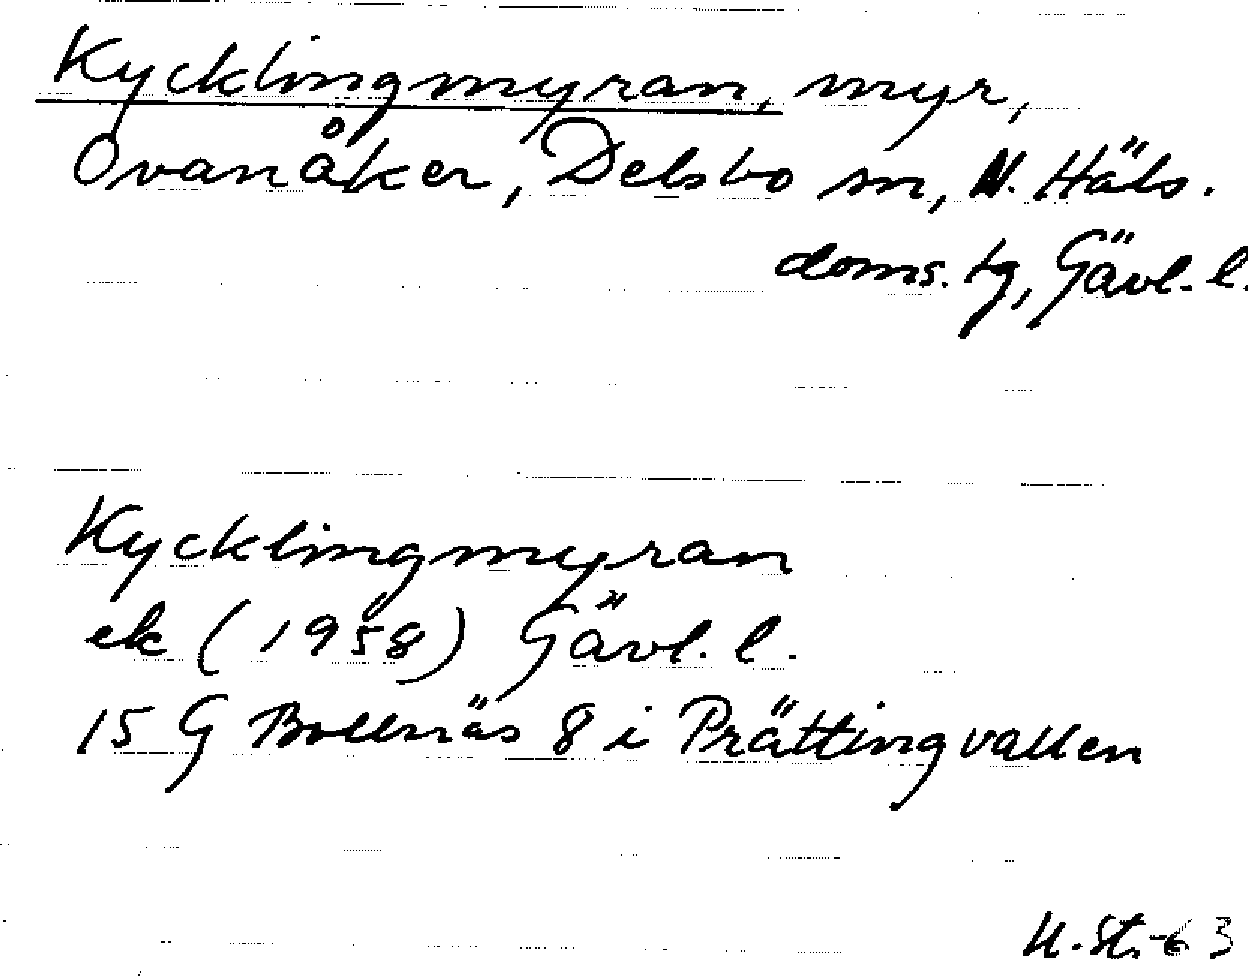 Kycklingmyran, myr,
Ovanåker, Delsbo sn, N. Häls.
doms. tg, Gävl. l.
Kycklingmyran
ek (1958) Gävl. l.
15 G Bollnäs 8 i Prättingvallen
U. St. -63